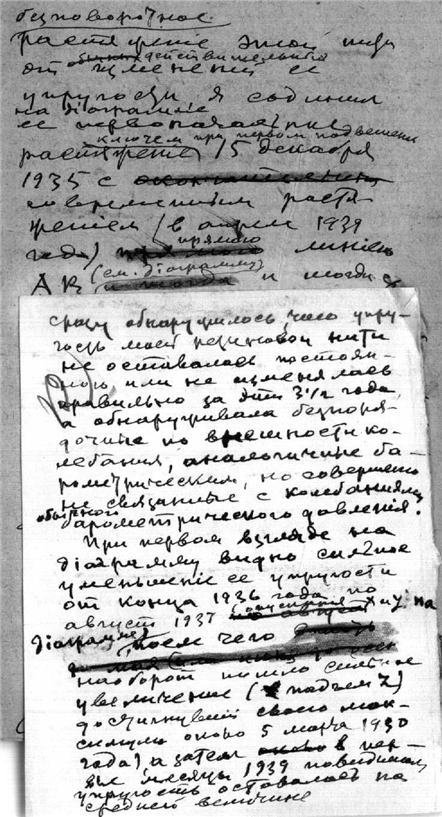 безповоротное
растяжение этой нити
от действительного
изменения ее
упругости я соединил
на діаграмме
ее первоначальные
ключем при первом подвешении
растяжение 15 декабря
1935 с
современным растя-
жением (в апреле 1939
года) прямою линией
АВ (см. діаграмму) и тогда
сразу обнаружилось, что упру-
гость моей резиновой нити
не оставалась постоян-
ною или не изменялась
правильно за эти 3 1/2 года,
а обнаруживала безпоря-
дочные по внешности ко-
лебания, аналогичные ба-
рометрическим, но совершенно
не связанные с колебаниями
обычного
барометрического давления.
При первом взгляде на
діаграмму видно сильное
уменьшение ее упругости
от конца 1936 года по
август 1937 на
діаграмме) после чего
наоборот пошло сильное
увеличение (подъем Z)
достигнувший своего мак-
симума около 5 марта 1930
года) а затем в пер-
вые месяцы 1939 повидимому
упругость оставалась на
средней величине